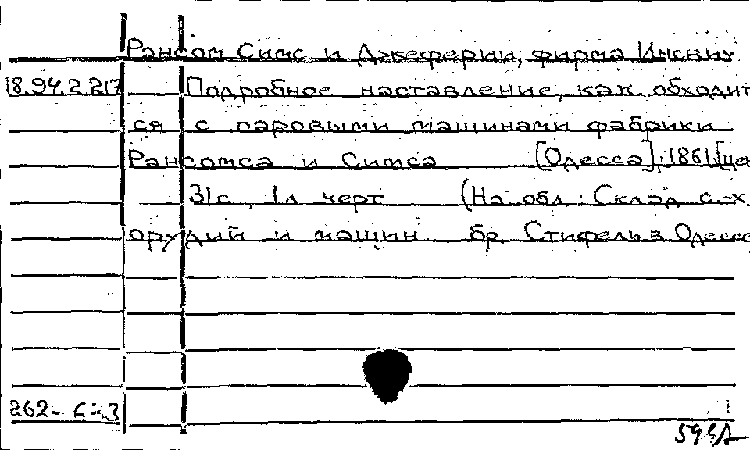 Рансом Симс и Джеферии, фирма
18.94.2.217 Подробное наставление, как обходит
ся с паровыми машинами фабрики
Рансомса и Симса [Одесса], 1861, [цен
31с., 1л черт (На обл.: Склад с.-х.
орудий и машин бр. Стифель в Одессе
262-